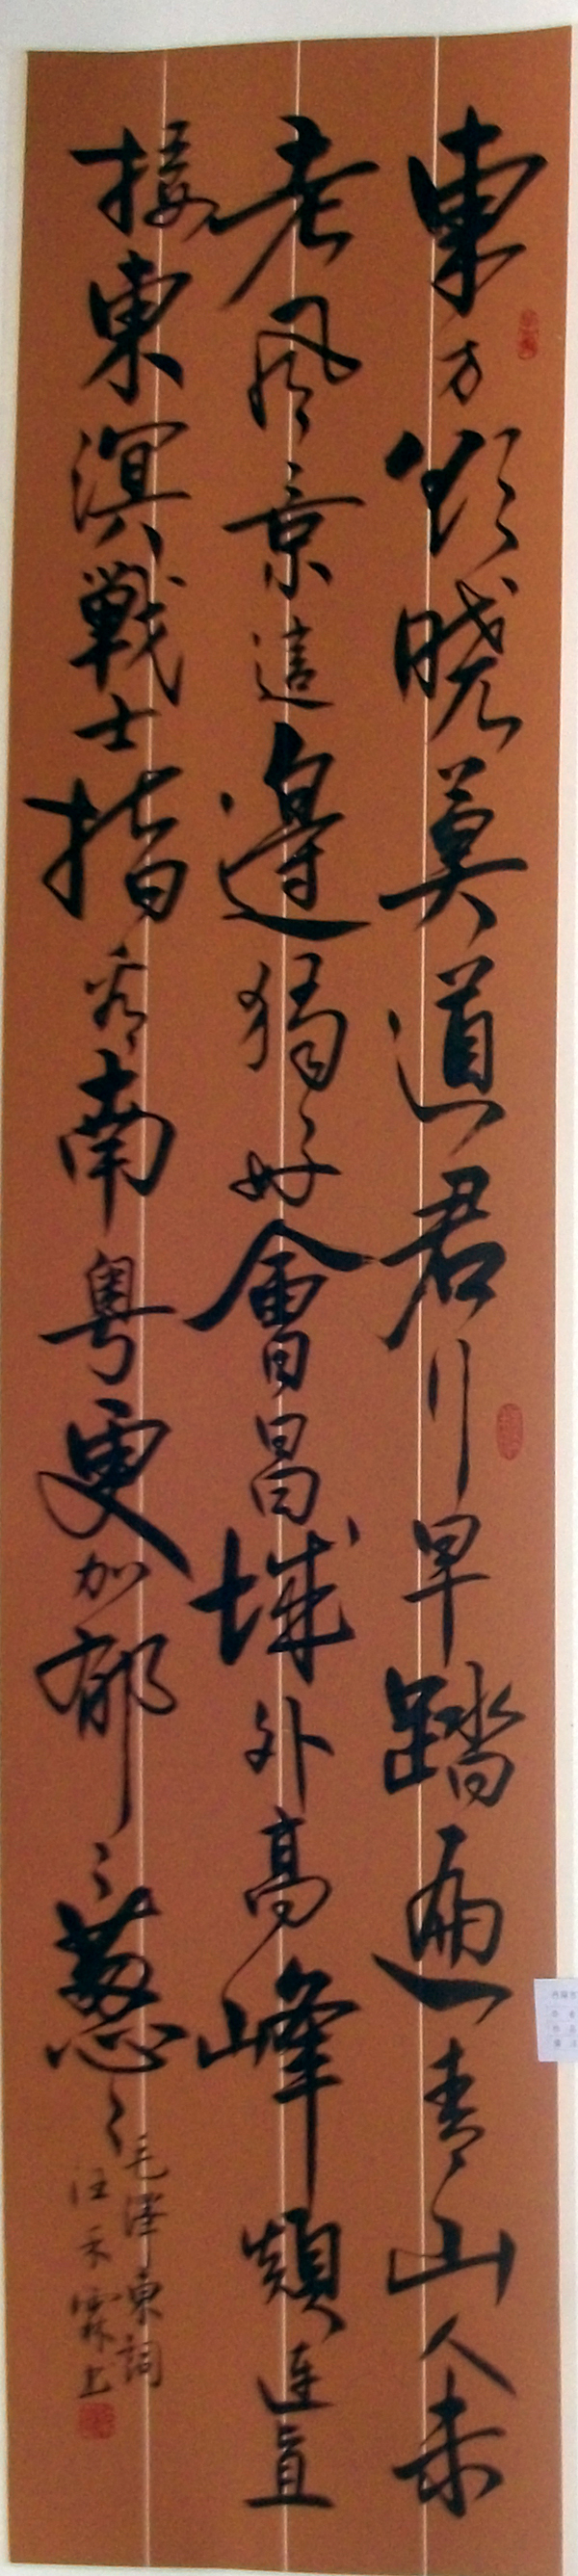 東方欲晓莫道君行早踏遍青山人未
老风景這邊獨好會昌城外高峰顛連直
接東溟戰士指看南粤更加郁々葱々
毛澤東詞
汪禾霖上